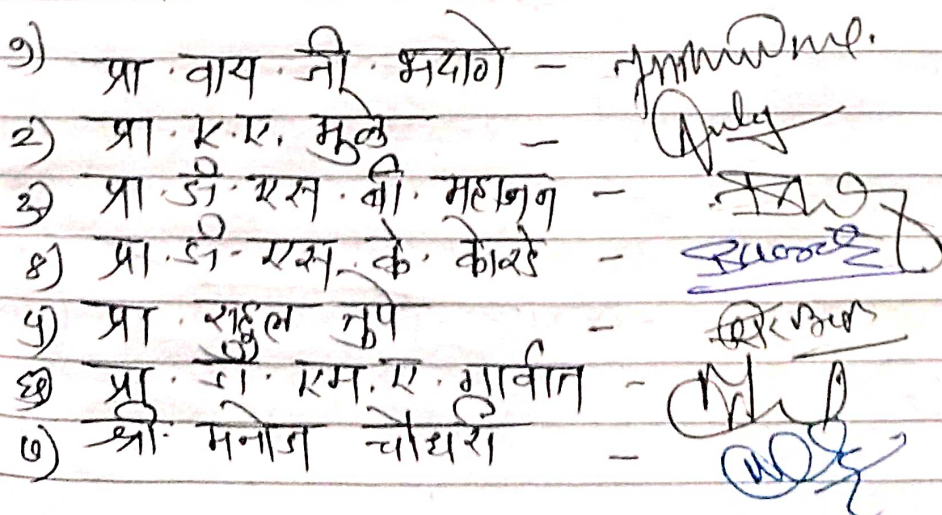 १) प्रा. वाय. जी. भदाणे -
२) प्रा. ए. ए. मुळे -
३) प्रा. डी. एस. बी. महाजन -
४) प्रा. डी. एस. के. कोरडे -
५) प्रा. राहुल तुपे -
६) प्रा. डॉ. एम. ए. गावीत -
७) श्री. मनोज चौधरी -